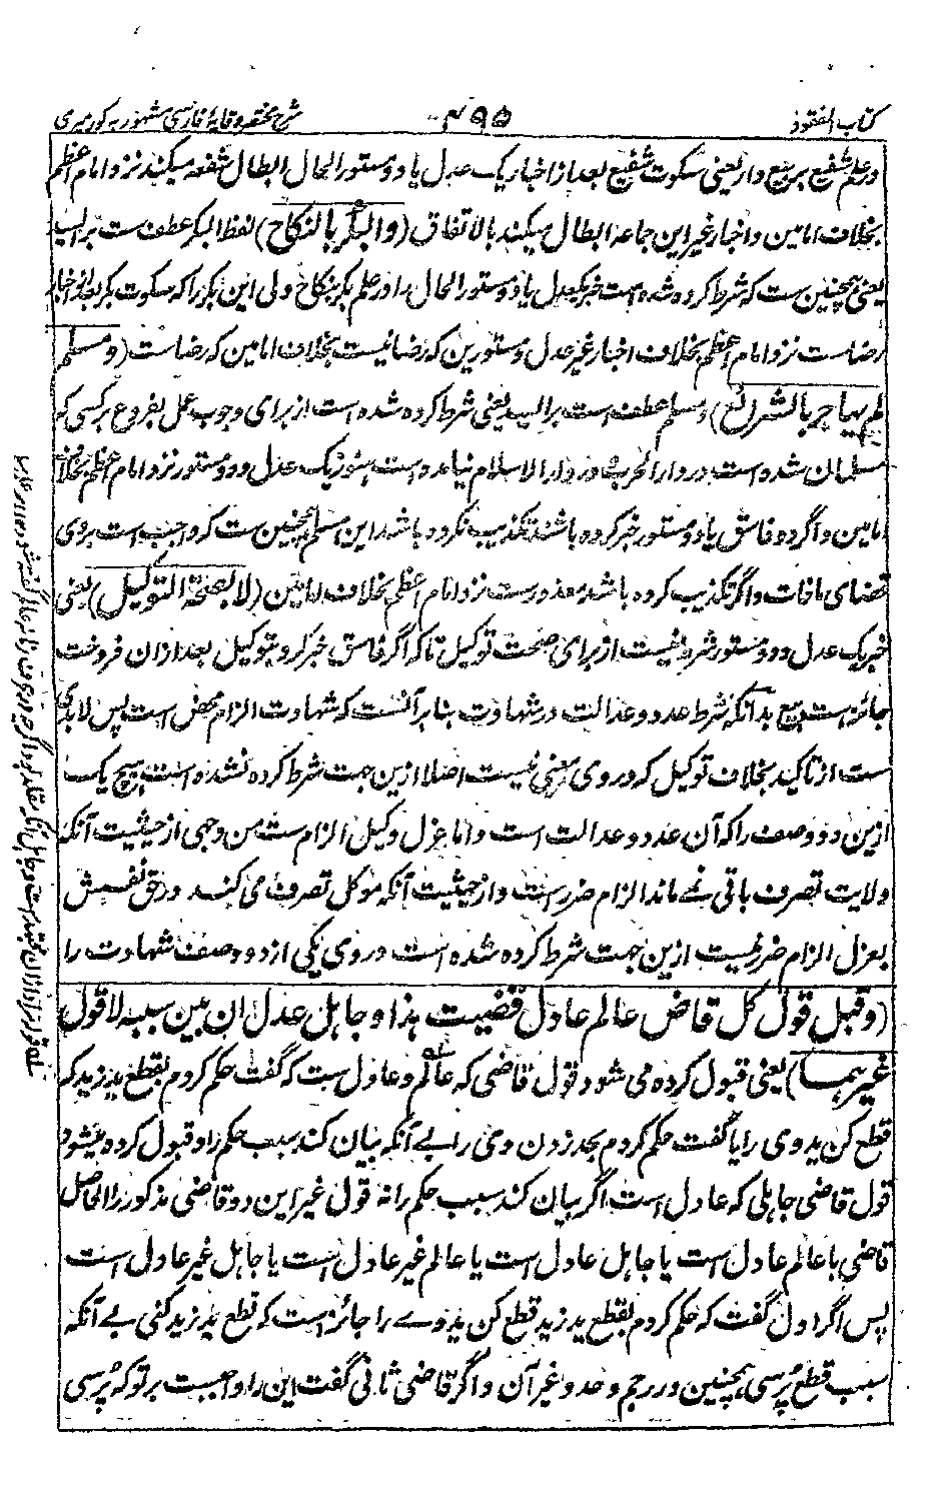 کتاب المفقود
۴۹۵
شرح مختصر وقایهٔ فارسی مشهور به کورمیری
در علم شفیع بر بیع دار یعنی سکوت شفیع بعد از اخبار یک عدل یا دو مستور الحال ابطال شفعه میکند نزد امام اعظم
بخلاف امامین و اخبار غیر این جماعه ابطال میکند بالاتفاق (والبکر بالنکاح) لفظ البکر عطف ست بر السید
یعنی همچنین ست که شرط کرده شده است خبر یکعدل یا دو مستور الحال را در علم بکر بنکاح ولی این بکر را که سکوت بکر بعد از اخبار
رضاست نزد امام اعظم بخلاف اخبار غیر عدل و مستورین که رضا نیست بخلاف امامین که رضاست (ومسلم
لم یهاجر بالشرائع) ومسلم عطف است بر السید یعنی شرط کرده شده است از برای وجوب عمل بفروع بر کسی که
مسلمان شده است در دار الحرب و در دار الاسلام نیامده است هنوز یک عدل و دو مستور نزد امام اعظم بخلاف
امامین و اگر ده فاسق یا دو مستور خبر کرده باشند تکذیب نکرده باشد این مسلم همچنین ست که واجب است بروی
قضای مافات و اگر تکذیب کرده باشد معذورست نزد امام اعظم بخلاف امامین (لا بصحة التوکیل) یعنی
خبر یک عدل و دو مستور شرط نیست از برای صحت توکیل تا که اگر فاسق خبر کرد بتوکیل بعد ازان فروخت
جائز است بیع بدانکه شرط عدد و عدالت در شهادت بنا بر آنست که شهادت الزام محض است پس لابدی
ست از تاکید بخلاف توکیل که در وی معنی نیست اصلا ازین جهت شرط کرده نشده است هیچ یک
ازین دو وصف را که آن عدد و عدالت است و اما عزل وکیل الزام ست من وجهی از حیثیت آنکه
ولایت تصرف باقی نمے ماند الزام ضررست و از حیثیت آنکه موکل تصرف می کند در حق نفسش
بعزل الزام ضرر نیست ازین جهت شرط کرده شده است در وی یکی از دو وصف شهادت را
(وقبل قول کل قاض عالم عادل قضیت بهذا وجاهل عدل ان بین سببه لا قول
غیرهما) یعنی قبول کرده می شود قول قاضی که عالم و عادل ست که گفت حکم کردم بقطع ید زید که
قطع کن ید وی را یا گفت حکم کردم بحد زدن وی را بے آنکه بیان کند سبب حکم را و قبول کرده میشود
قول قاضی جاهلی که عادل است اگر بیان کند سبب حکم را نه قول غیر این دو قاضی مذکور را الحاصل
قاضی یا عالم عادل است یا جاهل عادل است یا عالم غیر عادل است یا جاهل غیر عادل است
پس اگر اول گفت که حکم کردم بقطع ید زید قطع کن ید وے را جائز است که قطع ید زید کنی بے آنکه
سبب قطع پرسی همچنین در رجم وحد و غیر آن و اگر قاضی ثانی گفت این را واجبست بر تو که پرسی